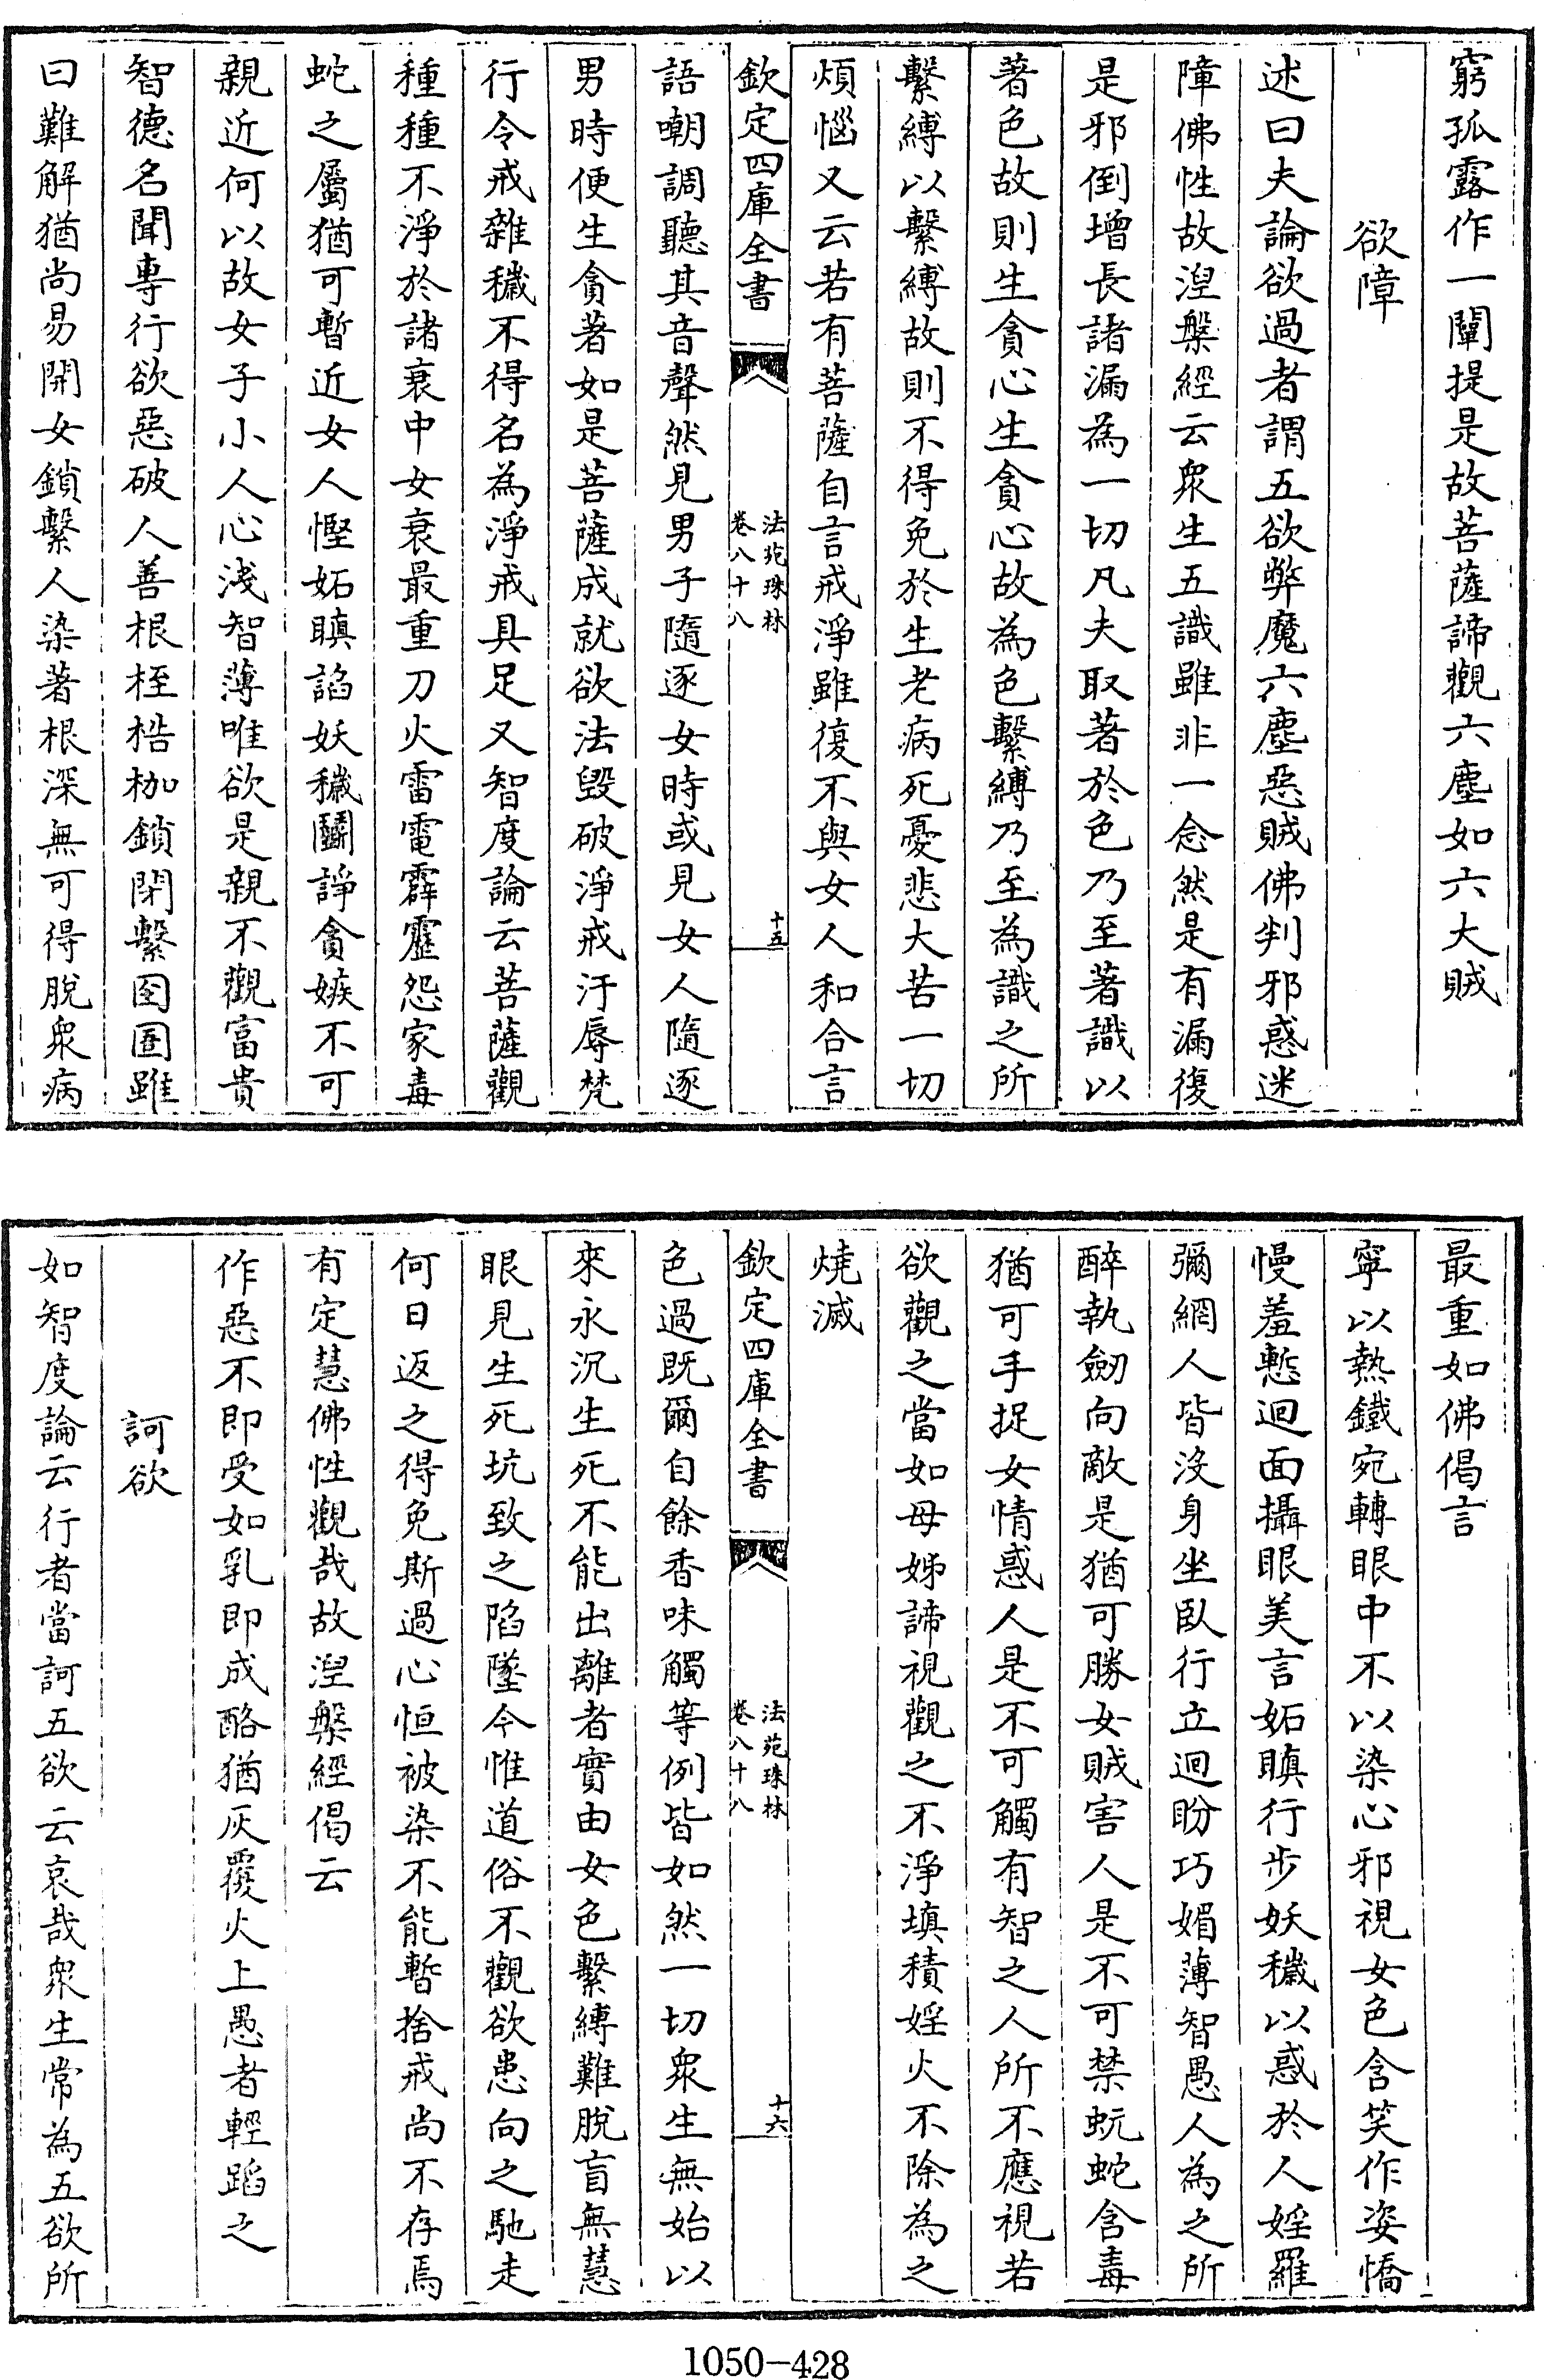 窮孤露作一闡提是故菩薩諦觀六塵如六大賊
欲障
述曰夫論欲過者謂五欲弊魔六塵惡賊佛判邪惑迷
障佛性故湼槃經云衆生五識雖非一念然是有漏復
是邪倒增長諸漏為一切凡夫取著於色乃至著識以
著色故則生貪心生貪心故為色繫縛乃至為識之所
繫縛以繫縛故則不得免於生老病死憂悲大苦一切
煩惱又云若有菩薩自言戒淨雖復不與女人和合言
欽定四庫全書
法苑珠林
卷八十八
十五
語嘲調聽其音聲然見男子隨逐女時或見女人隨逐
男時便生貪著如是菩薩成就欲法毁破淨戒汙辱梵
行令戒雜穢不得名為淨戒具足又智度論云菩薩觀
種種不淨於諸衰中女衰最重刀火雷電霹靂怨家毒
蛇之屬猶可暫近女人慳妬瞋諂妖穢鬬諍貪嫉不可
親近何以故女子小人心淺智薄唯欲是親不觀富貴
智德名聞專行欲惡破人善根桎梏枷鎖閉繫囹圄雖
曰難解猶尚易開女鎖繫人染著根深無可得脫衆病
最重如佛偈言
寧以熱鐵宛轉眼中不以染心邪視女色含笑作姿憍
慢羞慙迴面攝眼美言妬瞋行步妖穢以惑於人婬羅
彌網人皆没身坐臥行立迴盼巧媚薄智愚人為之所
醉執劒向敵是猶可勝女賊害人是不可禁蚖蛇含毒
猶可手捉女情惑人是不可觸有智之人所不應視若
欲觀之當如母姊諦視觀之不淨填積婬火不除為之
燒滅
欽定四庫全書
法苑珠林
卷八十八
十六
色過既爾自餘香味觸等例皆如然一切衆生無始以
來永沉生死不能出離者實由女色繫縛難脫盲無慧
眼見生死坑致之陷墜今惟道俗不觀欲患向之馳走
何日返之得免斯過心恒被染不能暫捨戒尚不存焉
有定慧佛性觀哉故湼槃經偈云
作惡不即受如乳即成酪猶灰覆火上愚者輕蹈之
訶欲
如智度論云行者當訶五欲云哀哉衆生常為五欲所
1050-428